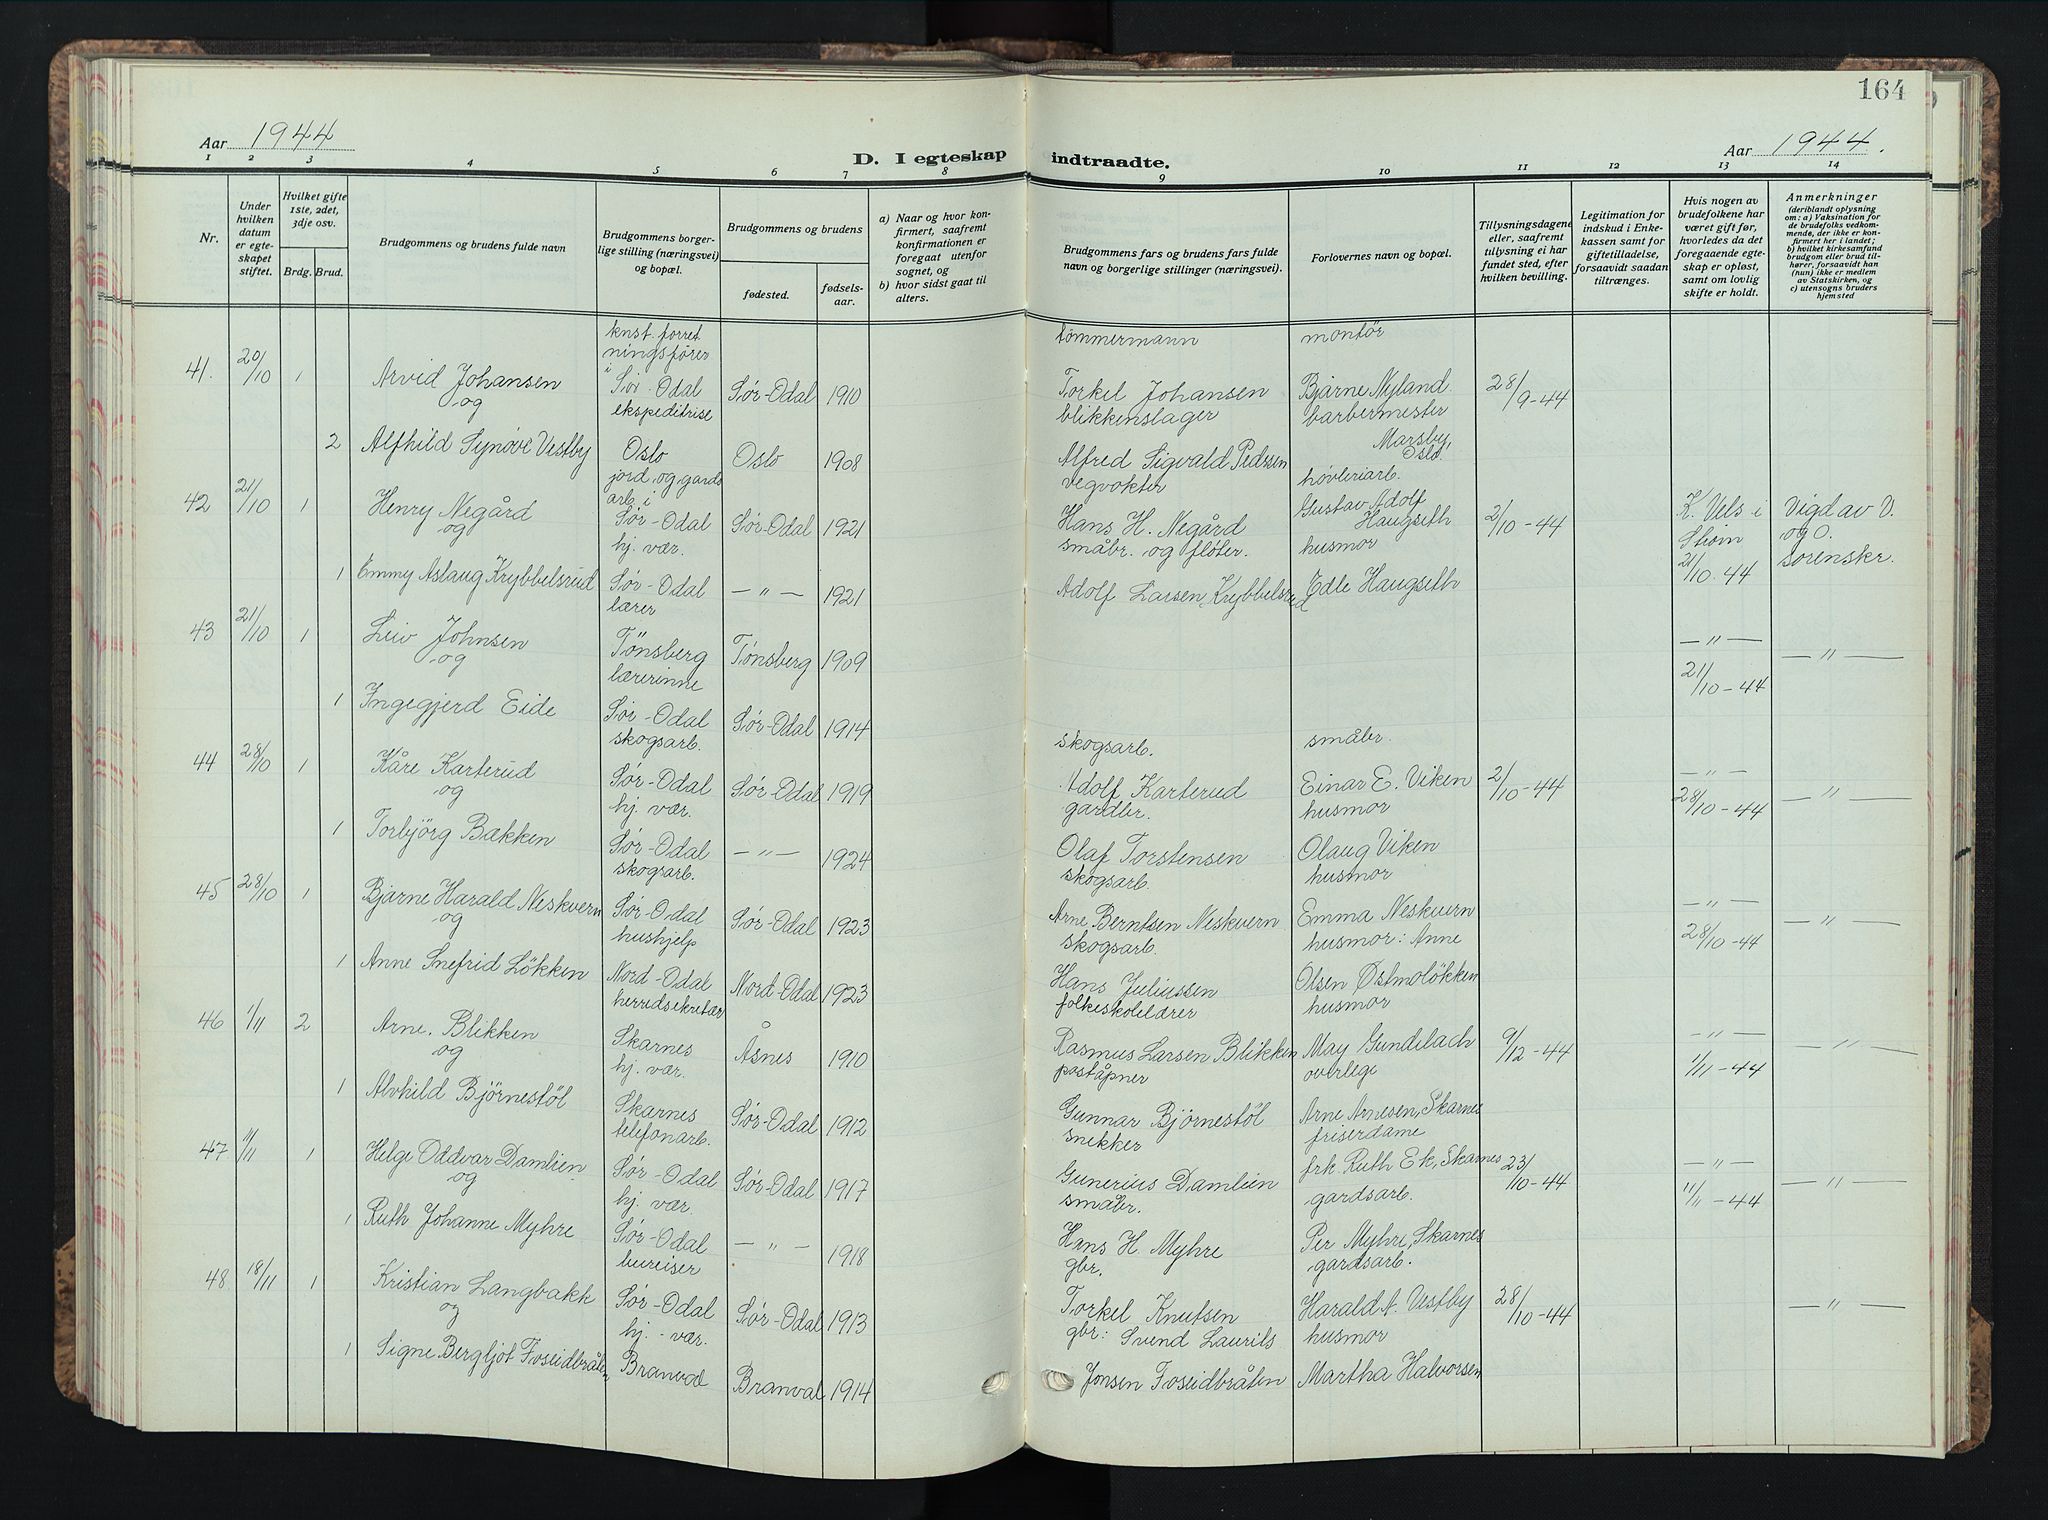 164
Aar 1944
D. I egteskap indtraadte.
Aar 1944.
1 2 3 4 5 6 7 8 9 10 11 12 13 14
Nr.
Under hvilken datum er egteskapet stiftet.
Hvilket gifte 1ste, 2det, 3dje osv.
Brdg. Brud.
Brudgommens og brudens fulde navn
Brudgommens borgerlige stilling (næringsvei) og bopæl.
Brudgommens og brudens
fødested.
fødselsaar.
a) Naar og hvor konfirmert, saafremt konfirmationen er foregaat utenfor sognet, og
b) hvor sidst gaat til alters.
Brudgommens fars og brudens fars fulde navn og borgerlige stillinger (næringsvei).
Forlovernes navn og bopæl.
Tillysningsdagene eller, saafremt tilysning ei har fundet sted, efter hvilken bevilling.
Legitimation for indskud i Enkekassen samt for giftetilladelse, forsaavidt saadan tiltrænges.
Hvis nogen av brudefolkene har været gift før, hvorledes da det foregaaende egteskap er opløst, samt om lovlig skifte er holdt.
Anmerkninger (deriblandt oplysning om: a) Vaksination for de brudefolks vedkommende, der ikke er konfirmert her i landet; b) hvilket kirkesamfund brudgom eller brud tilhører, forsaavidt han (hun) ikke er medlem av Statskirken, og c) utensogns bruders hjemsted
knst. forret
ningsfører
tømmermann montør
41. 20/10 1 Arvid Johansen i Sør-Odal Sør-Odal 1910 Torkel Johansen Bjarne Nyland 28/9-44
og ekspeditrise blikkenslager barbermester
2 Alfhild Synøve Vestby Oslo Oslo 1908 Alfred Sigvald Pedersen Marsby, Oslo.
jord. og gards arb. i vegvokter høvleriarb.
42 21/10 1 Henry Negård Sør-Odal Sør-Odal 1921 Hans H. Negård Gustav Adolf Haugseth 2/10-44 K. Vels i Strøm 21/10.44 Vigd av V. og O. Sorenskr.
og hj. vær. småbr. og fløter. husmor
1 Emmy Aslaug Krybbelsrud Sør-Odal — " — 1921 Adolf Larsen Krybbelsrud Edle Haugseth
lærer
43 21/10 1 Leiv Johnsen Tønsberg Tønsberg 1909 — " — 21/10-44 — " —
og lærerinne
1 Ingegjerd Eide Sør-Odal Sør-Odal 1914
skogsarb. skogsarb. småbr.
44 28/10 1 Kåre Karterud Sør-Odal Sør-Odal 1919 Adolf Karterud Einar E. Viken 2/10-44 — " — 28/10-44 — " —
og hj. vær. gardbr. husmor
1 Torbjörg Bækken Sør-Odal — " — 1924 Olaf Torstensen Olaug Viken
skogsarb. skogsarb. husmor
45 28/10 1 Bjarne Harald Neskvern Sør-Odal Sør-Odal 1923 Arne Berntsen Neskvern Emma Neskvern — " — 28/10-44 — " —
og hushjelp skogsarb. husmor: Anne
1 Anne Snefrid Løkken Nord-Odal Nord-Odal 1923 Hans Juliussen Olsen Østmoløkken
herredsekretær folkeskolelærer husmor
46 1/11 2 Arne. Blikken Skarnes Åsnes 1910 Rasmus Larsen Blikken May Gundelach 9/12-44 — " — 1/11-44 — " —
og hj. vær. poståpner overlege
1 Alvhild Bjørnestøl Skarnes Sør-Odal 1912 Gunnar Bjørnestøl Arne Arnesen, Skarnes
telefonarb. snekker friserdame
47 11/11 1 Helge Oddvar Damlien Sør-Odal Sør-Odal 1917 Gunerius Damlien frk. Ruth Ek, Skarnes 23/10-44 — " — 11/11-44 — " —
og hj. vær. småbr. gardsarb.
1 Ruth Johanne Myhre Sør-Odal — " — 1918 Hans H. Myhre Per Myhre, Skarnes
bureiser gbr. gardsarb.
48 18/11 1 Kristian Langbakk Sør-Odal Sør-Odal 1913 Torkel Knutsen Harald A. Vestby 28/10-44 — " —
og hj.-vær. gbr: Svend Laurits husmor
1 Signe Bergljot Foseidbråten Branvol Branval 1914 Jonsen Foseidbråten Martha Halvorsen